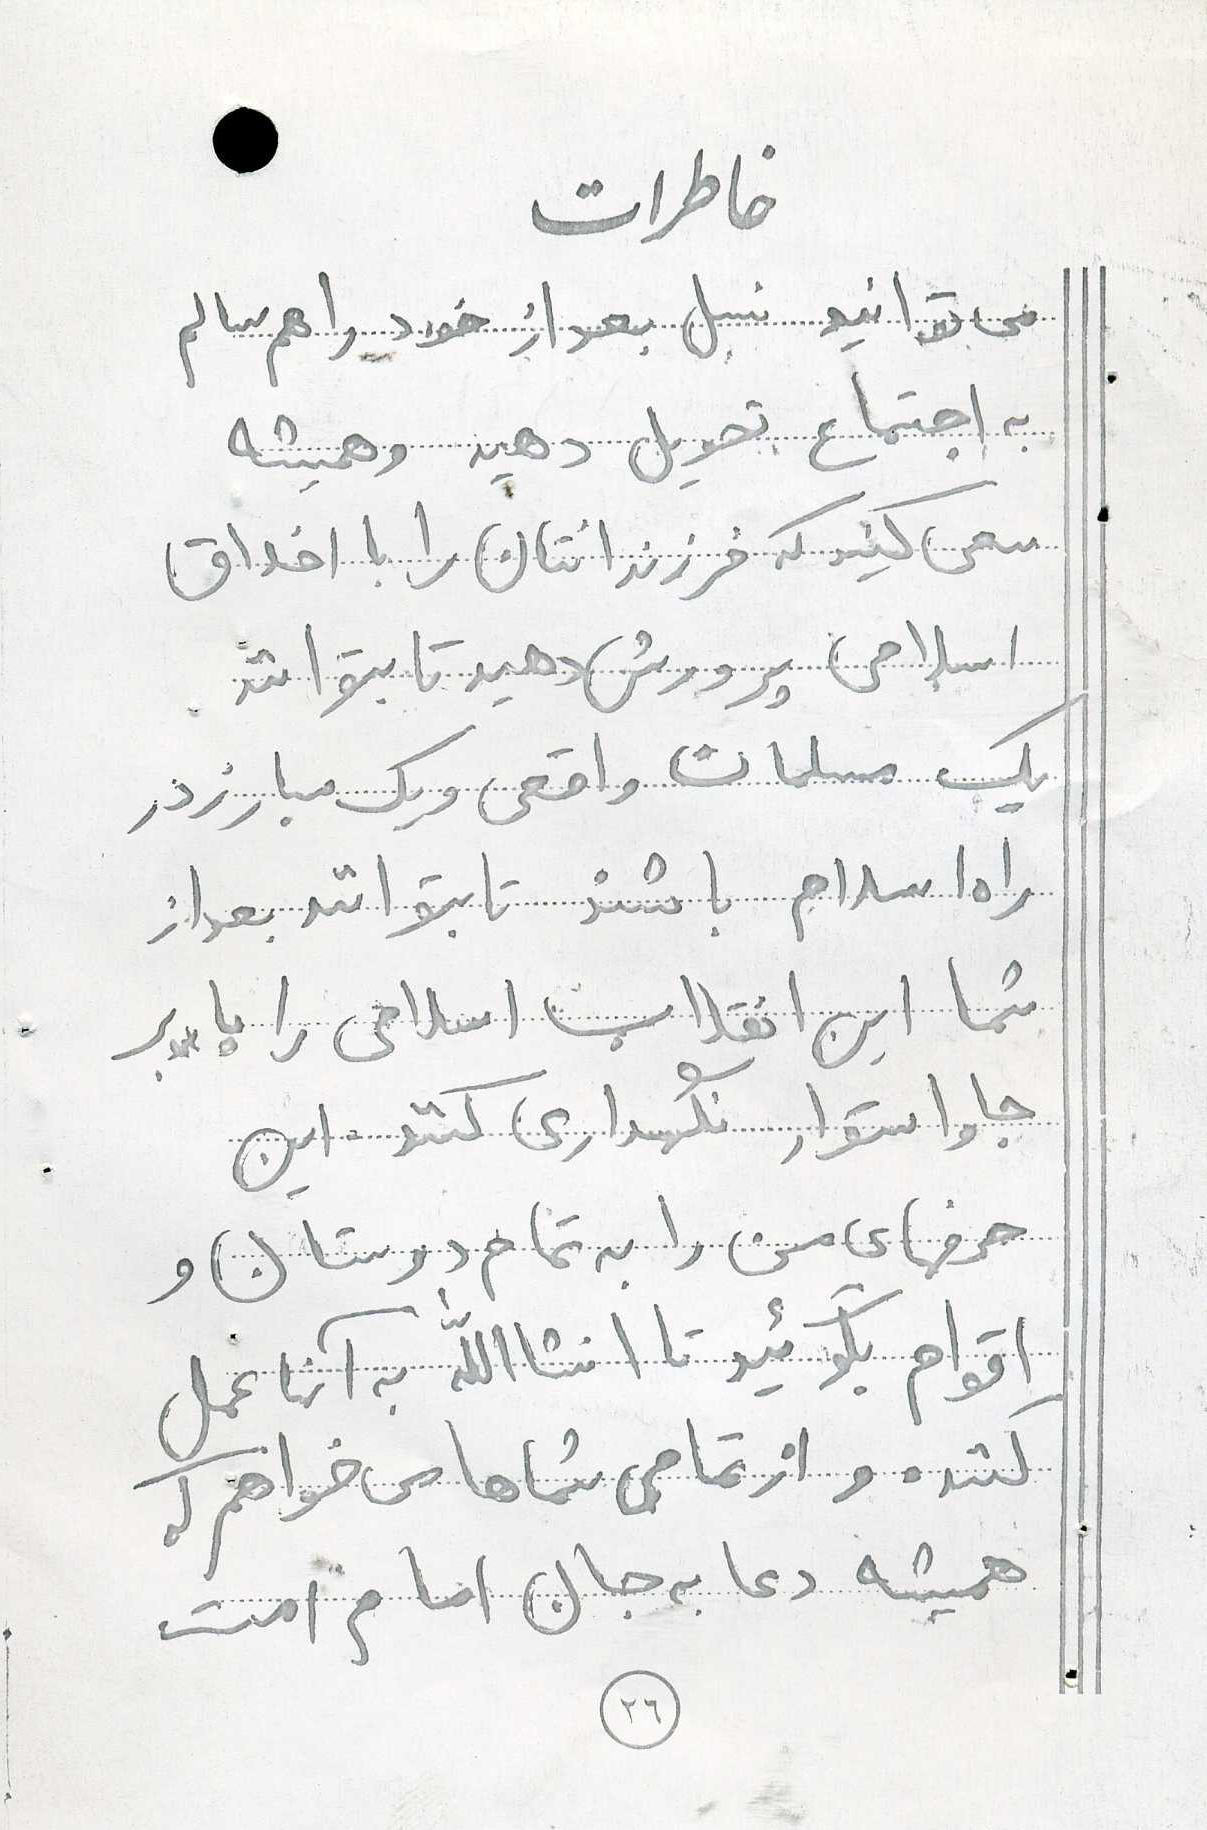 خاطرات
می توانید نسل بعد از خود را هم سالم
به اجتماع تحویل دهید و همیشه
سعی کنید که فرزندانتان را با اخلاق
اسلامی پرورش دهید تا بتوانند
یک مسلمان واقعی و یک مبارز در
راه اسلام باشند تا بتوانند بعد از
شما این انقلاب اسلامی را پا بر
جا و استوار نگهداری کنند. این
حرفهای من را به تمام دوستان و
اقوام بگوئید تا انشاالله به آنها عمل
کنند. و از تمامی شماها می خواهم که
همیشه دعا به جان امام امت
۲۶